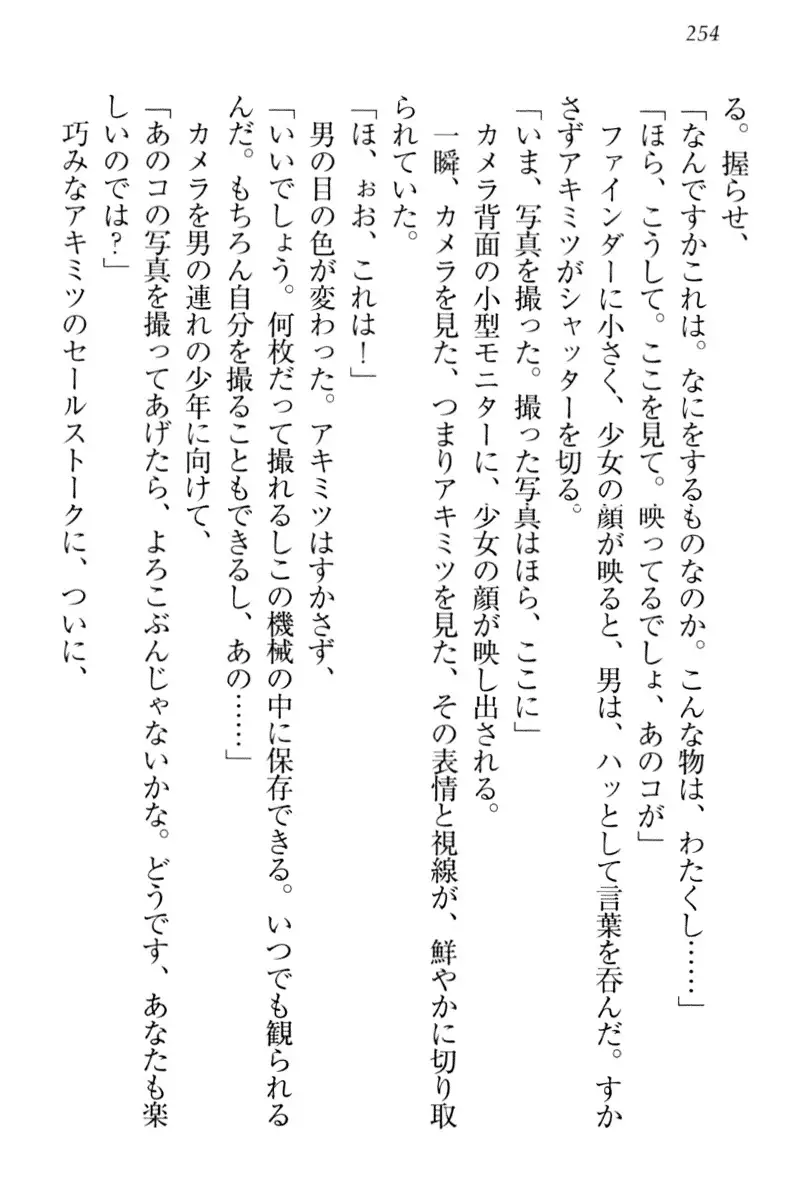 254
る。握らせ、
「なんですかこれは。なにをするものなのか。こんな物は、わたくし……」
「ほら、こうして。ここを見て。映ってるでしょ、あのコが」
ファインダーに小さく、少女の顔が映ると、男は、ハッとして言葉を呑んだ。すか
さずアキミツがシャッターを切る。
「いま、写真を撮った。撮った写真はほら、ここに」
カメラ背面の小型モニターに、少女の顔が映し出される。
一瞬、カメラを見た、つまりアキミツを見た、その表情と視線が、鮮やかに切り取
られていた。
「ほ、ぉお、これは！」
男の目の色が変わった。アキミツはすかさず、
「いいでしょう。何枚だって撮れるしこの機械の中に保存できる。いつでも観られる
んだ。もちろん自分を撮ることもできるし、あの……」
カメラを男の連れの少年に向けて、
「あのコの写真を撮ってあげたら、よろこぶんじゃないかな。どうです、あなたも楽
しいのでは？」
巧みなアキミツのセールストークに、ついに、